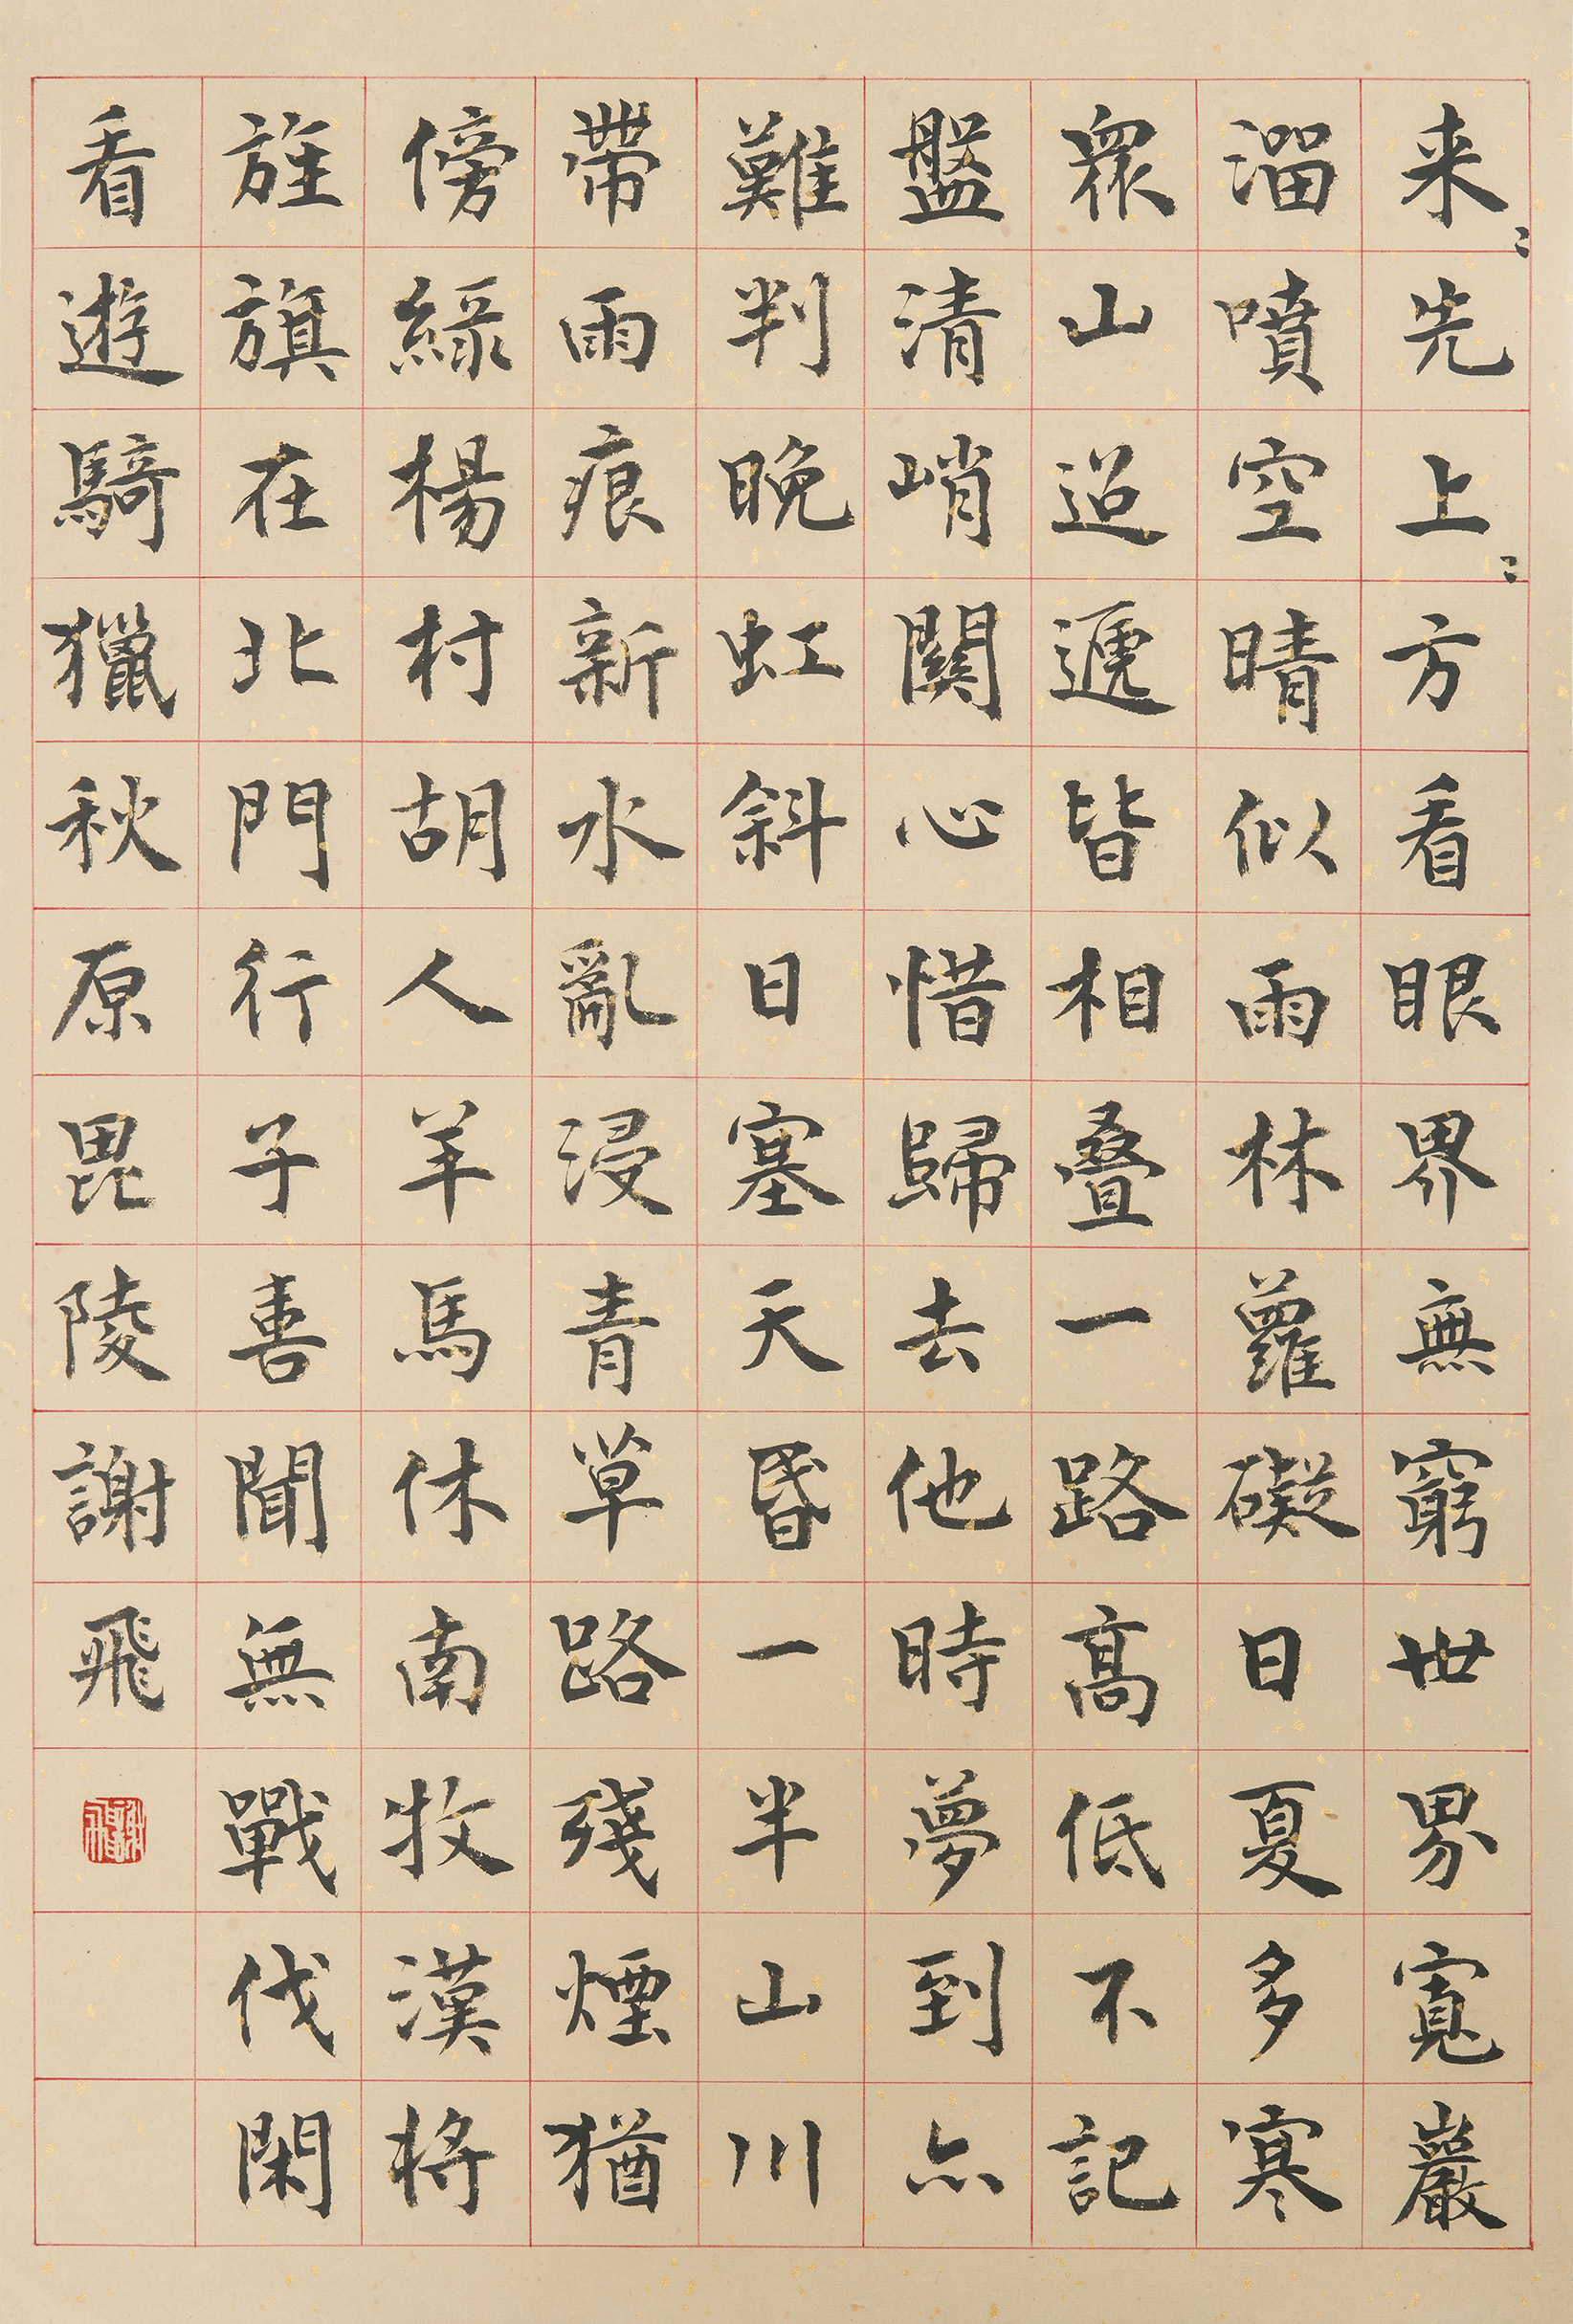 来先上方看眼界無窮世界寬巖
溜噴空晴似雨林蘿礙日夏多寒
眾山迢遞皆相叠一路高低不記
盤清峭關心惜歸去他時夢到亦
難判晚虹斜日塞天昏一半山川
帶雨痕新水亂浸青草路殘煙猶
傍綠楊村胡人羊馬休南牧漢將
旌旗在北門行子喜聞無戰伐閑
看遊騎獵秋原毘陵謝飛